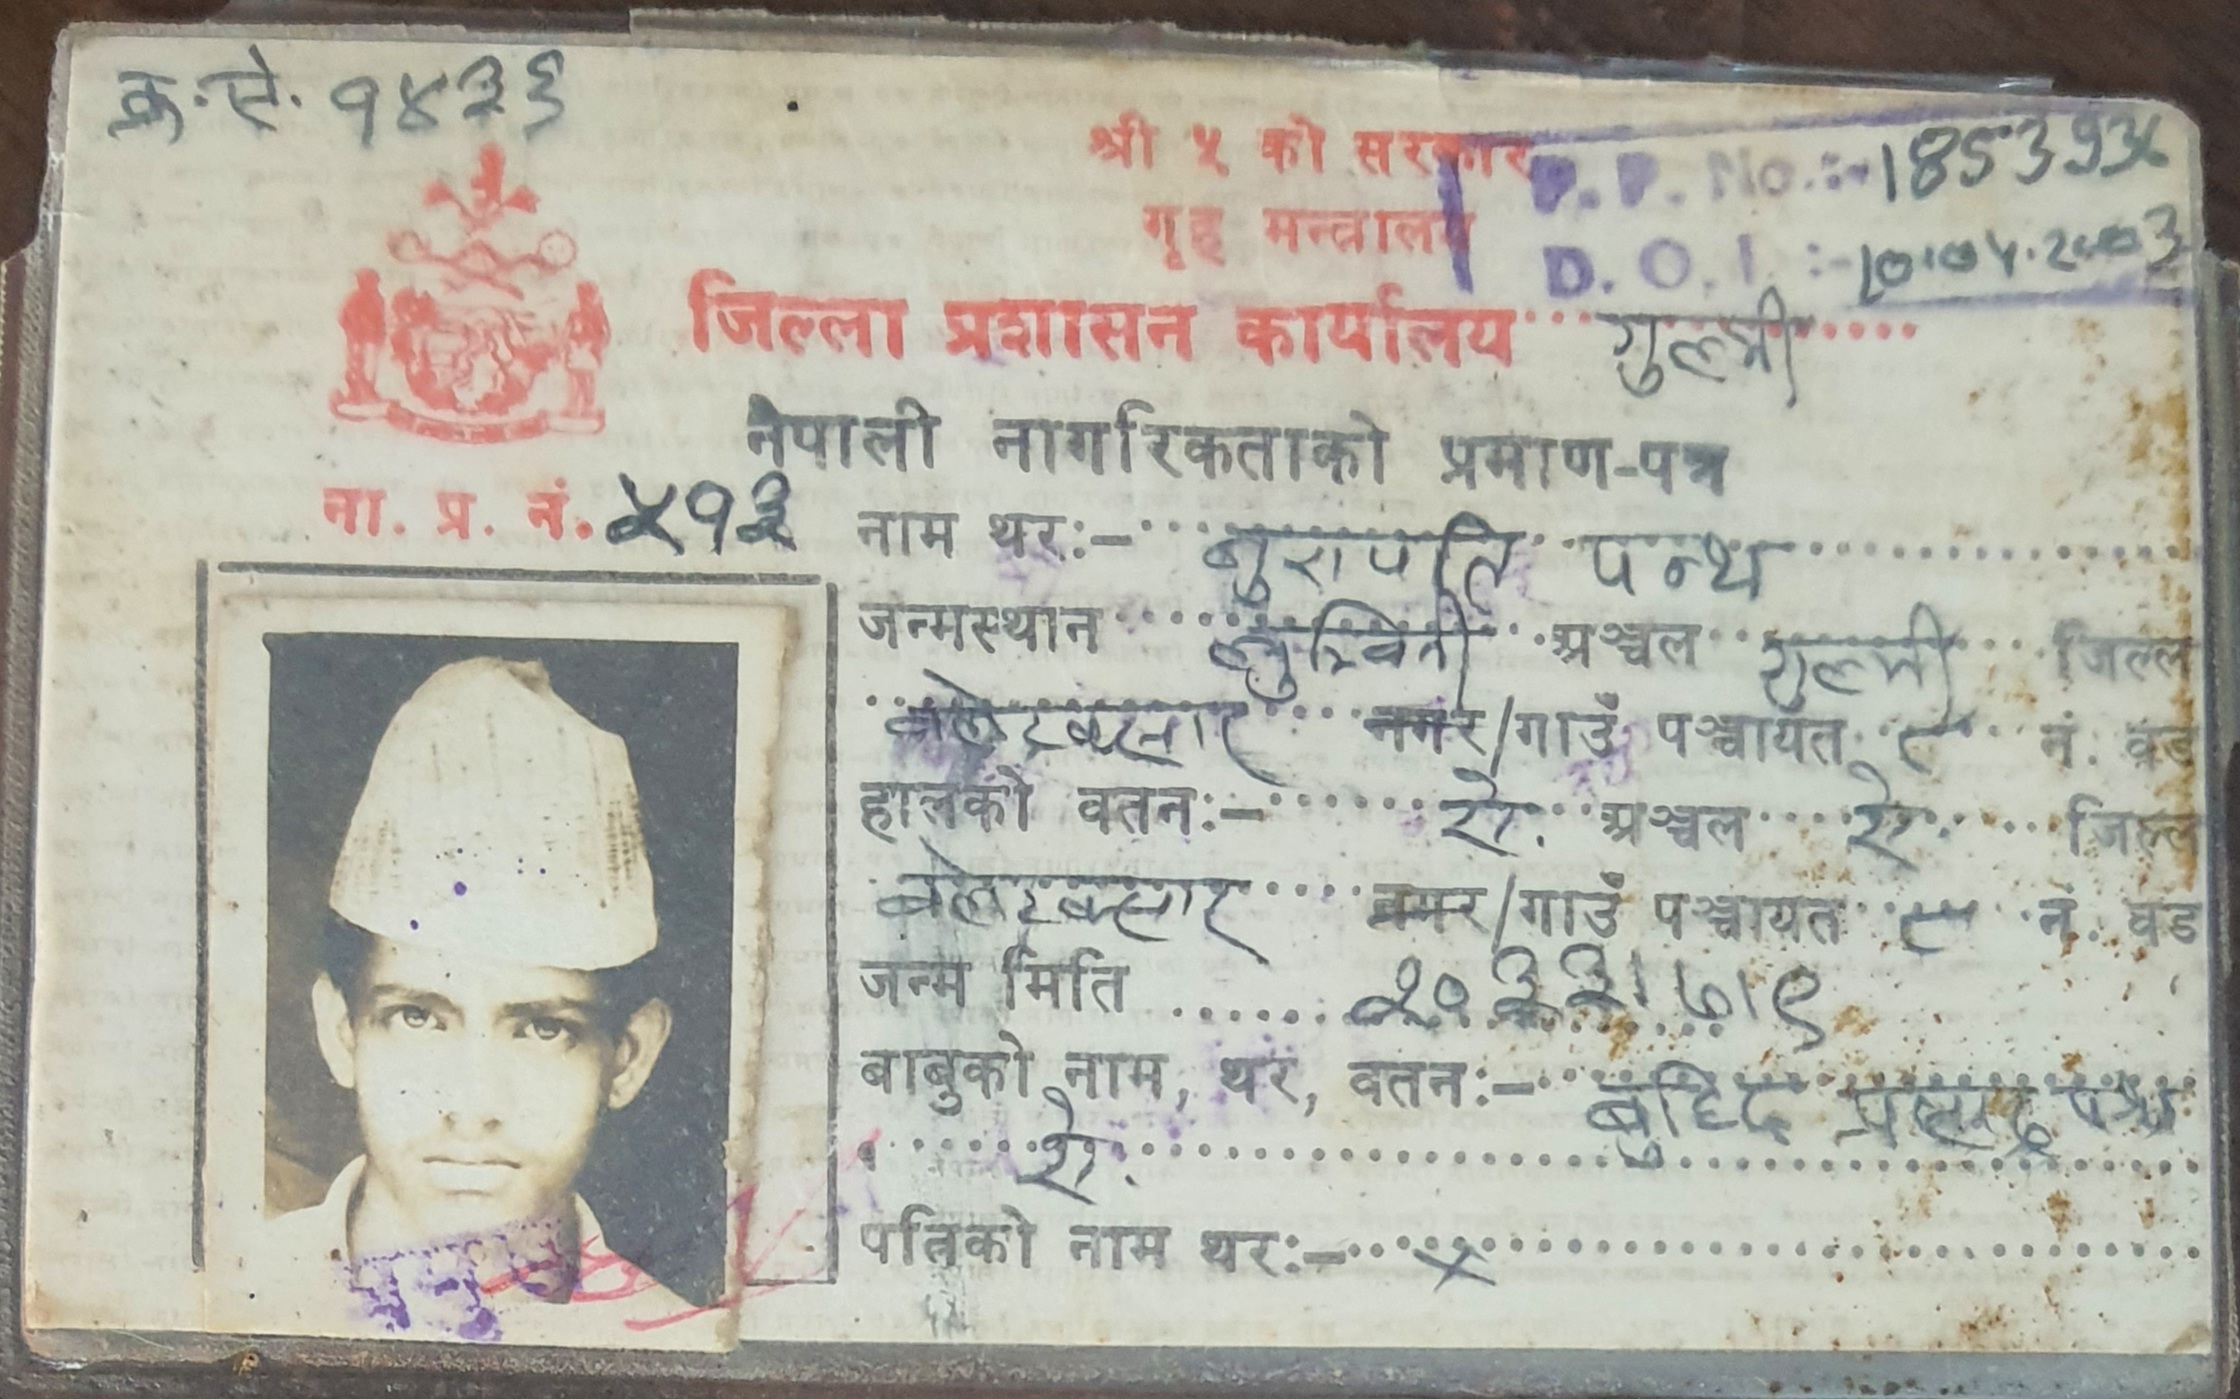 क्र.से. १४३६
श्री ५ को सरकार
P.P. No.:- 18539३५
गृह मन्त्रालय
D.O.I. :- 10.04.2003
जिल्ला प्रशासन कार्यालय गुल्मी
नेपाली नागरिकताको प्रमाण-पत्र
ना. प्र. नं. ५१३
नाम थर:- पन्थ
जन्मस्थान लुम्बिनी अञ्चल गुल्मी जिल्ल
नगर/गाउँ पञ्चायत ८ नं. वड
हालको वतन:- ऐ. अञ्चल ऐ. जिल्ल
नगर/गाउँ पञ्चायत ८ नं. वड
जन्म मिति २०३३।७।९
बाबुको नाम, थर, वतन:- बुद्धि प्रसाद पन्थ
ऐ.
पतिको नाम थर:- ×